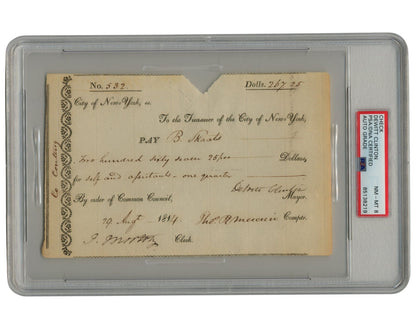 No. 532 Dolls. 267 25
City of New-York, ss.
To the Treasurer of the City of New-York,
PAY B. Skaats
Two hundred sixty seven 25/100 Dollars,
for self and assistants - one quarter
DeWitt Clinton
By order of Common Council, Mayor.
29 Augt 1814 Thos. R. Mercein Compr.
J. Morton Clerk.
CHECK
DEWITT CLINTON
PSA/DNA CERTIFIED
AUTO GRADE
NM-MT 8
85138219